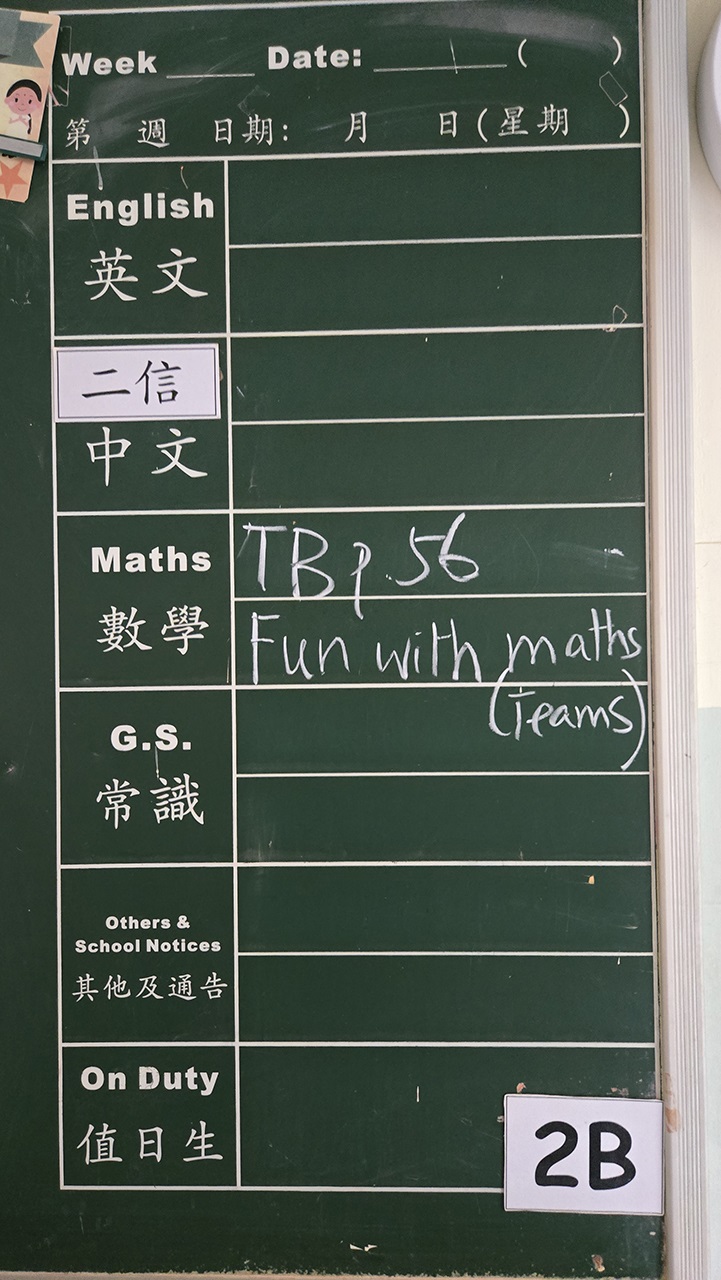 Week ____ Date: ________ ( )
第 週 日期: 月 日(星期 )
English
英文
二信
中文
Maths
TBp.56
數學
Fun with maths
(Teams)
G.S.
常識
Others &
School Notices
其他及通告
On Duty
值日生
2B